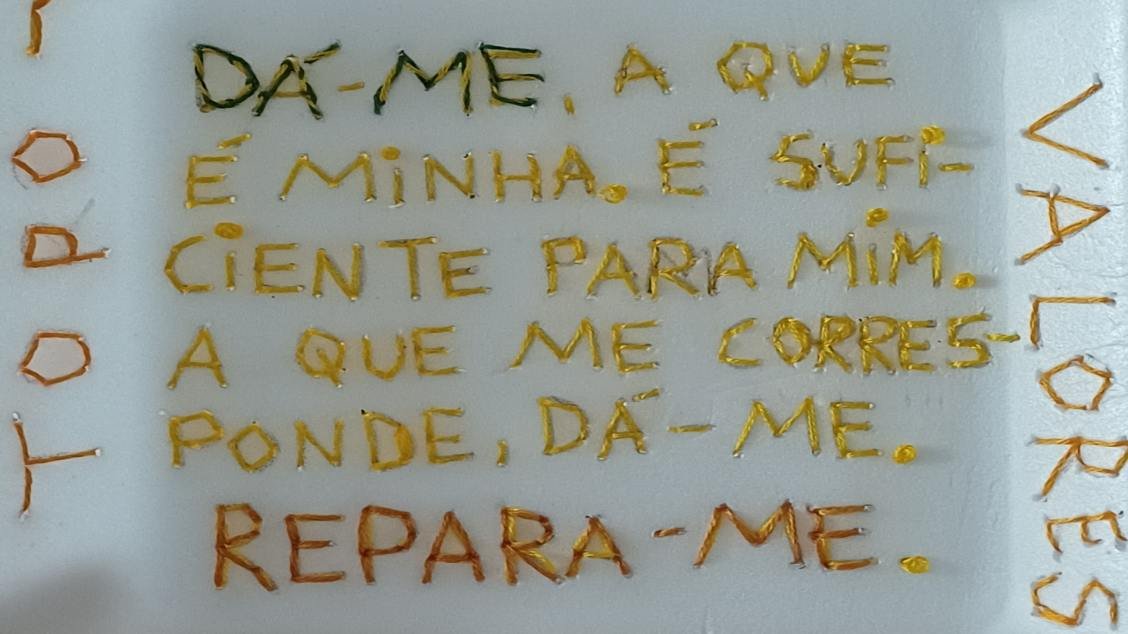 DÁ-ME, A QUE
É MINHA. É SUFI-
CIENTE PARA MIM.
A QUE ME CORRES-
PONDE, DÁ-ME.
REPARA-ME.
VALORES